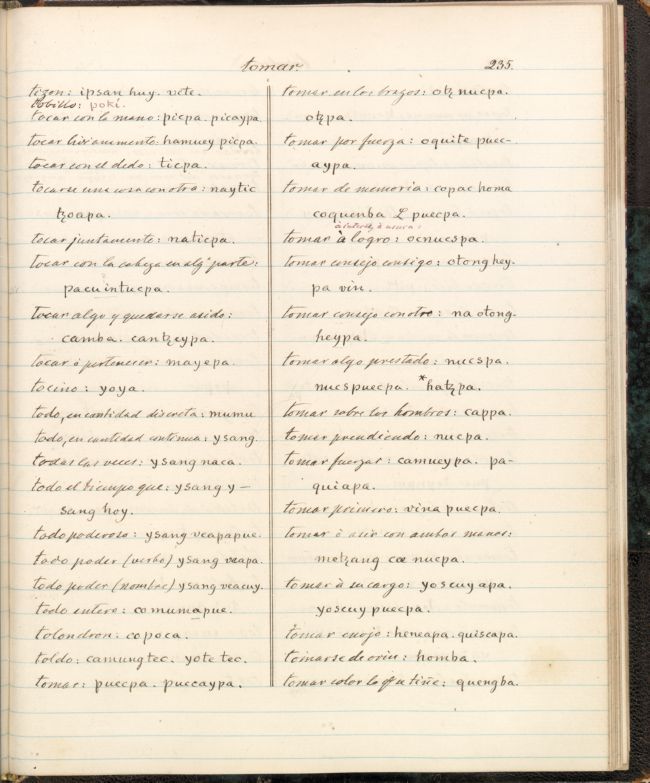 tomar.
235.
tizon: ipsan huy. vite.
tobillo: poki.
tocar con la mano: picpa. picaypa.
tocar livianamente: hamuey picpa.
tocar con el dedo: ticpa.
tocarse una cosa con otra: naytic
tzoapa.
tocar juntamente: naticpa.
tocar con la cabeza en algᵃ parte:
pacuintucpa.
tocar algo y quedarse asido:
camba. cantzeypa.
tocar ò pertenecer: mayepa.
tocino: yoya.
todo, en cantidad discreta: mumu
todo, en cantidad continua: ysang.
todas las veces: ysang naca.
todo el tiempo que: ysang y-
sang hoy.
todo poderoso: ysang veapapue.
todo poder (verbo) ysang veapa.
todo poder (nombre) ysang veacuy.
todo entero: comumapue.
tolondron: copoca.
toldo: camungtec. yote tec.
tomar: puecpa. puecaypa.
tomar en los brazos: otz nucpa.
otzpa.
tomar por fuerza: oquite puec-
aypa.
tomar de memoria: copac homa
coquenba L puecpa.
à interes, à usura:
tomar à logro: ocnucspa.
tomar consejo consigo: otong hey-
pa vin.
tomar consejo con otro: na otong-
heypa.
tomar algo prestado: nucspa.
nucspuecpa. *hatzpa.
tomar sobre los hombros: cappa.
tomar prendiendo: nucpa.
tomar fuerzas: camueypa. pa-
quiapa.
tomar primero: vina puecpa.
tomar ò asir con ambas manos:
metzang cœ nucpa.
tomar à su cargo: yoscuy apa.
yoscuy puecpa.
tomar enojo: heneapa. quiscapa.
tomarse de orin: homba.
tomar color lo qᵉ se tiñe: quengba.